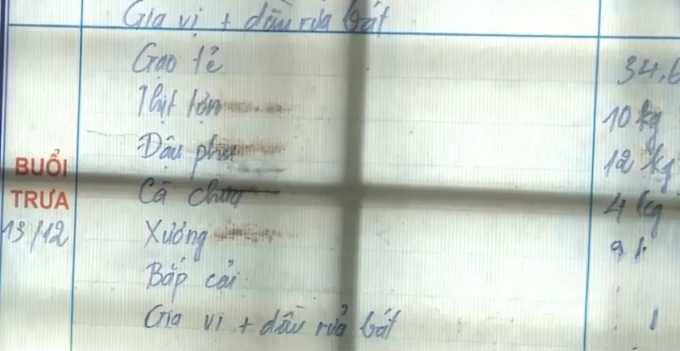 Gia vị + dầu rửa bát
Gạo tẻ 34,6
Thịt lợn 10 kg
Đậu phụ 12 kg
BUỔI
TRƯA
Cà chua 4 kg
13/12
Xương 9
Bắp cải
Gia vị + dầu rửa bát